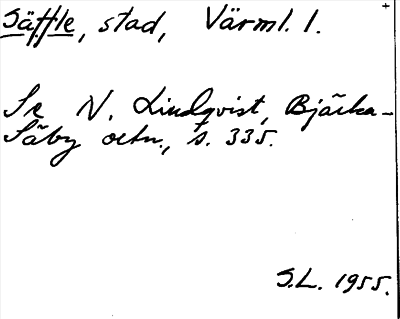 Säffle, stad, Värml. l.
Se N. Lindqvist, Bjärka-
Säby ortn., s. 335.
S.L. 1955.